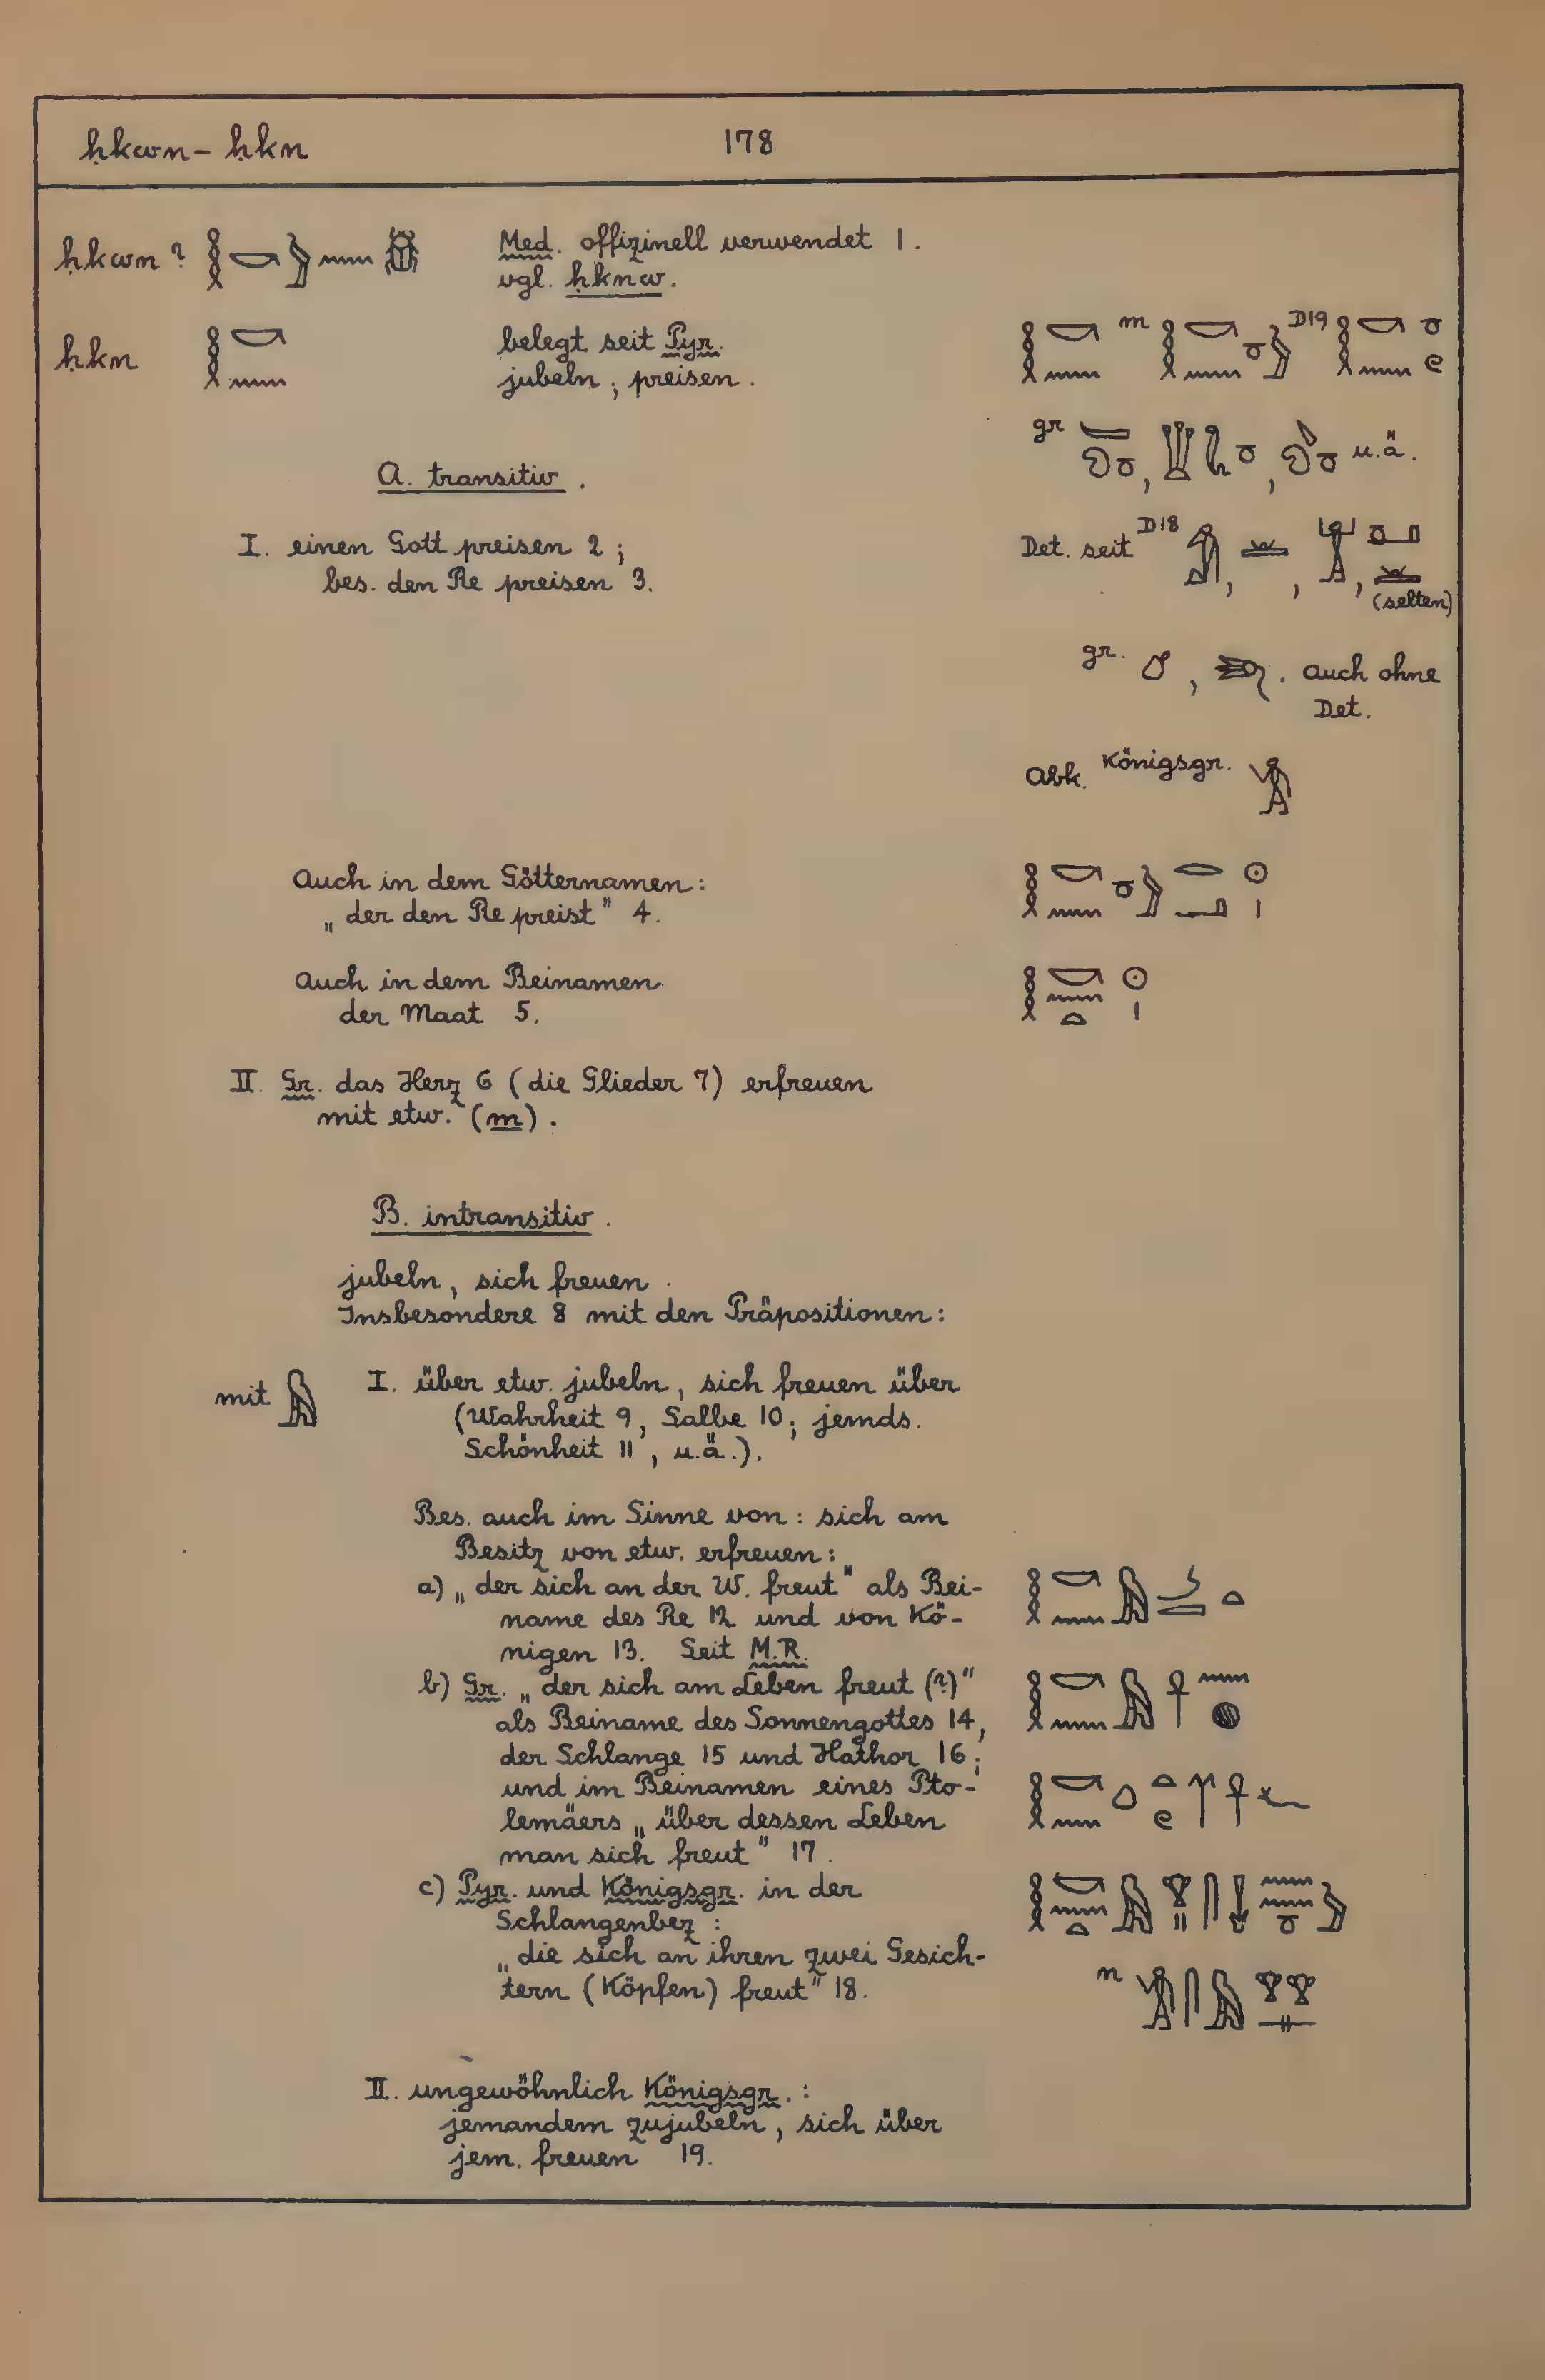 ḥkwn – ḥkn 178
ḥkwn ? 𓎛𓎡𓅱𓈖𓆣 Med. offizinell verwendet 1.
vgl. ḥknw.
ḥkn 𓎛𓎡𓈖 belegt seit Pyr.
jubeln; preisen.
m D19
gr u.ä.
A. transitiv.
I. einen Gott preisen 2;
bes. den Re preisen 3.
Det. seit D18
(selten)
gr. Auch ohne
Det.
Abk. Königsgr.
Auch in dem Götternamen:
„der den Re preist" 4.
Auch in dem Beinamen 𓎛𓎡𓈖𓏏𓇳𓏤
der Maat 5.
II. Gr. das Herz 6 (die Glieder 7) erfreuen
mit etw. (m).
B. intransitiv.
jubeln, sich freuen.
Insbesondere 8 mit den Präpositionen:
mit 𓅓 I. über etw. jubeln, sich freuen über
(Wahrheit 9, Salbe 10; jemds.
Schönheit 11, u.ä.).
Bes. auch im Sinne von: sich am
Besitz von etw. erfreuen:
a) „der sich an der W. freut" als Bei-
name des Re 12 und von Kö-
nigen 13. Seit M.R.
b) Gr. „der sich am Leben freut (?)"
als Beiname des Sonnengottes 14,
der Schlange 15 und Hathor 16;
und im Beinamen eines Pto-
lemäers „über dessen Leben
man sich freut" 17.
c) Pyr. und Königsgr. in der
Schlangenbez:
„die sich an ihren zwei Gesich-
tern (Köpfen) freut" 18.
n
II. ungewöhnlich Königsgr.:
jemandem zujubeln, sich über
jem. freuen 19.